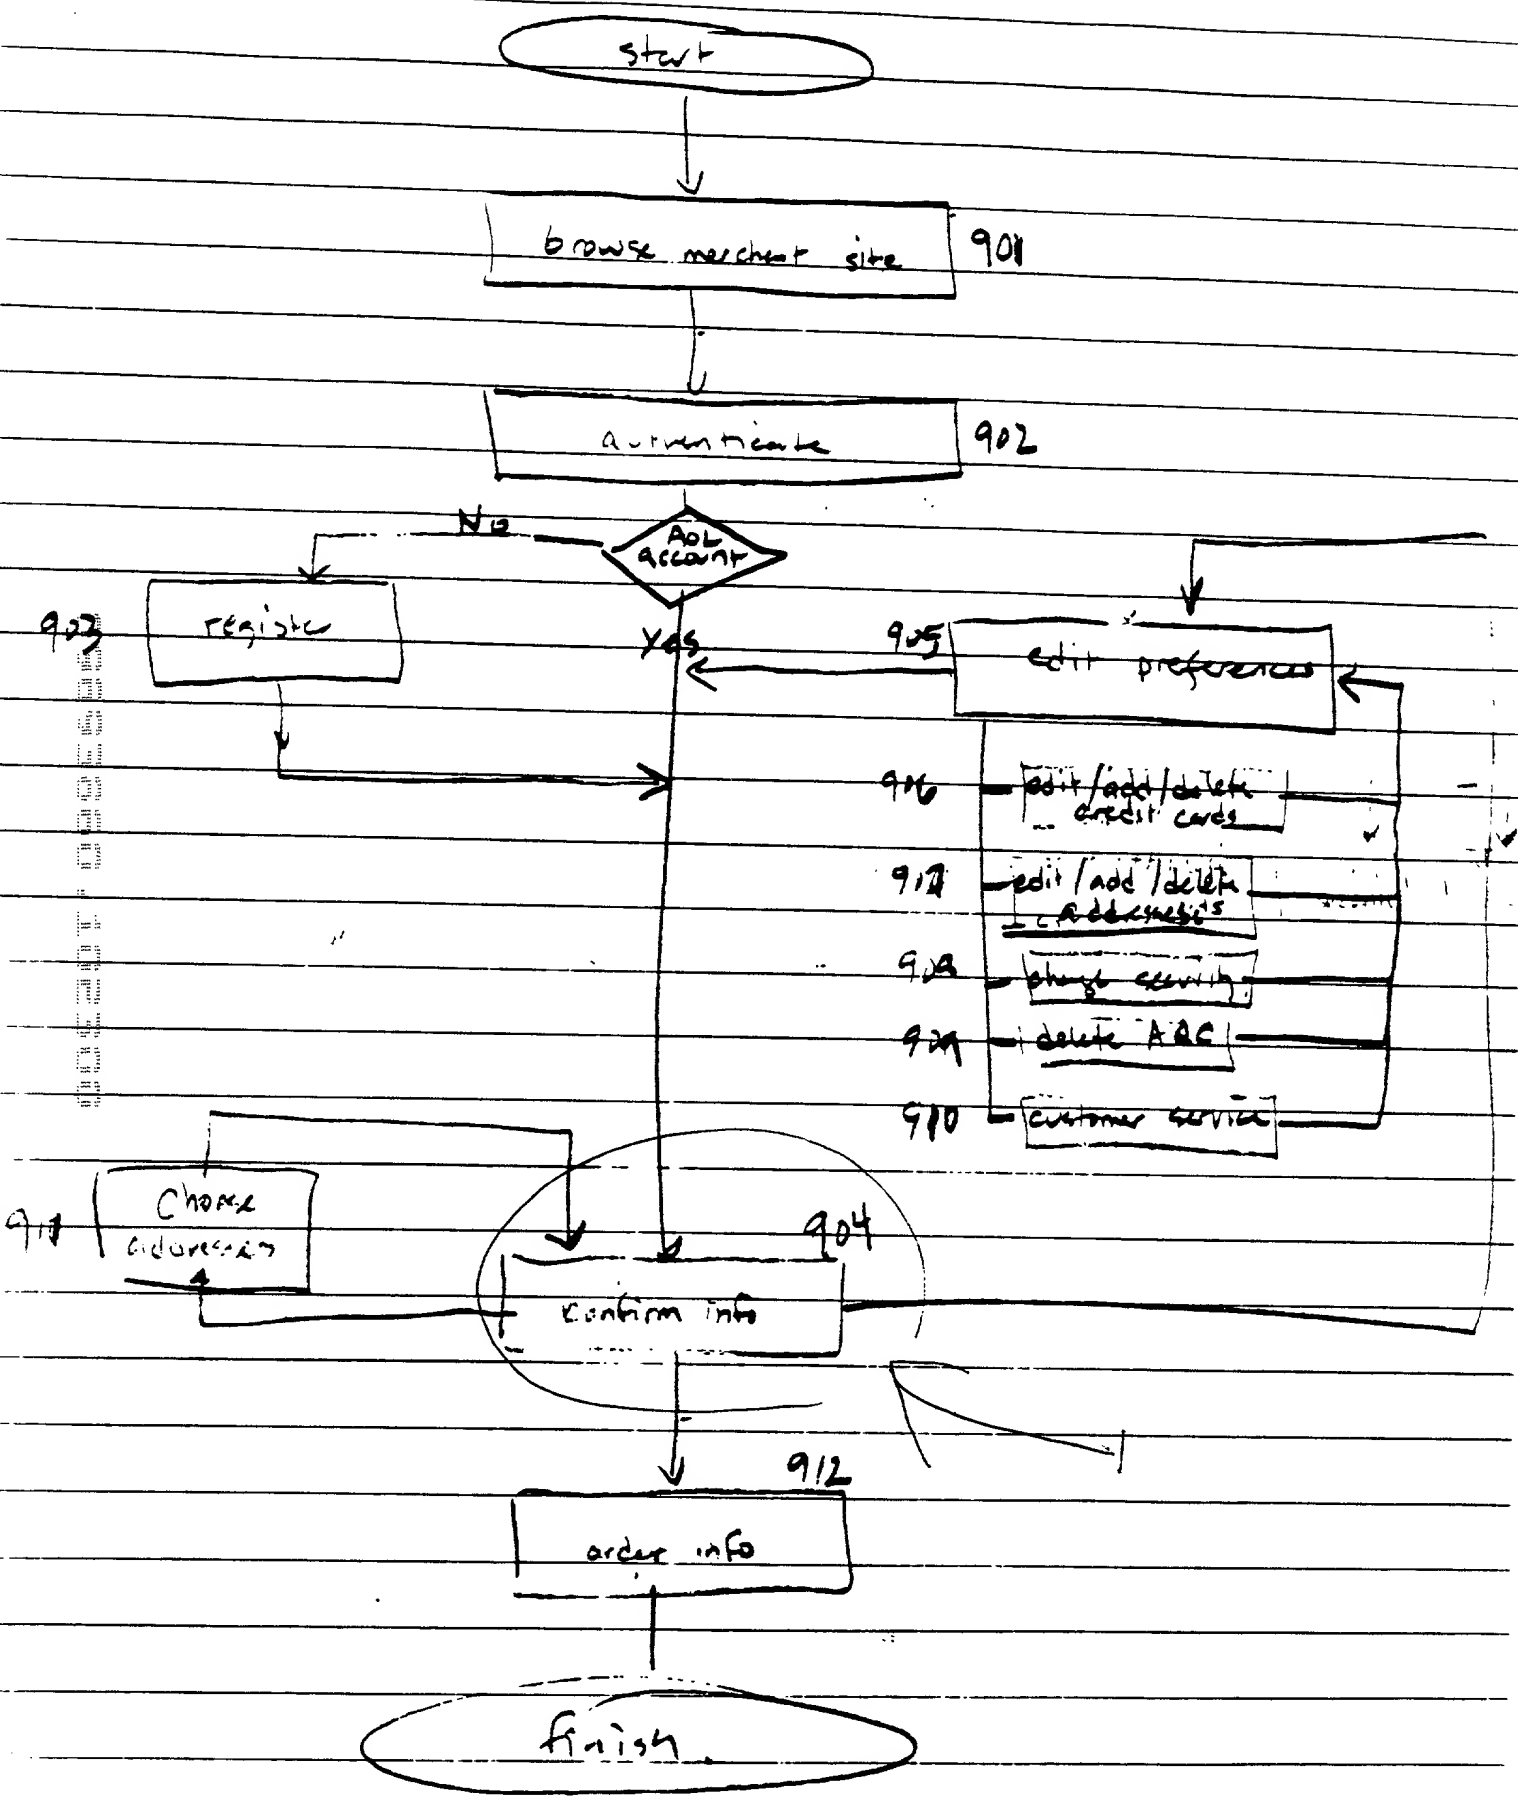 start
browse merchant site 901
authenticate 902
No
AOL
account
903 register
Yes
905 edit preferences
906 edit/add/delete
credit cards
907 edit/add/delete
addresses
908 change security
909 delete AQC
910 customer service
911 Choose
addresses
904
confirm info
912
order info
finish